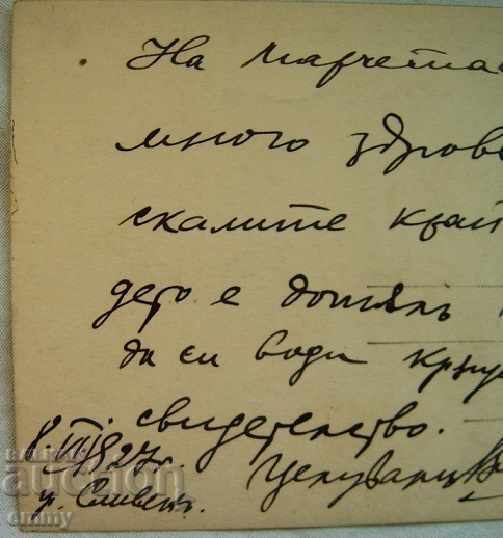 На Марчета
много здраве
скалите край
дето е дошълъ
да си води кръще
свидетелство.
8.VIII 927 г.
гр. Сливен.
Целувам
auction
emmy